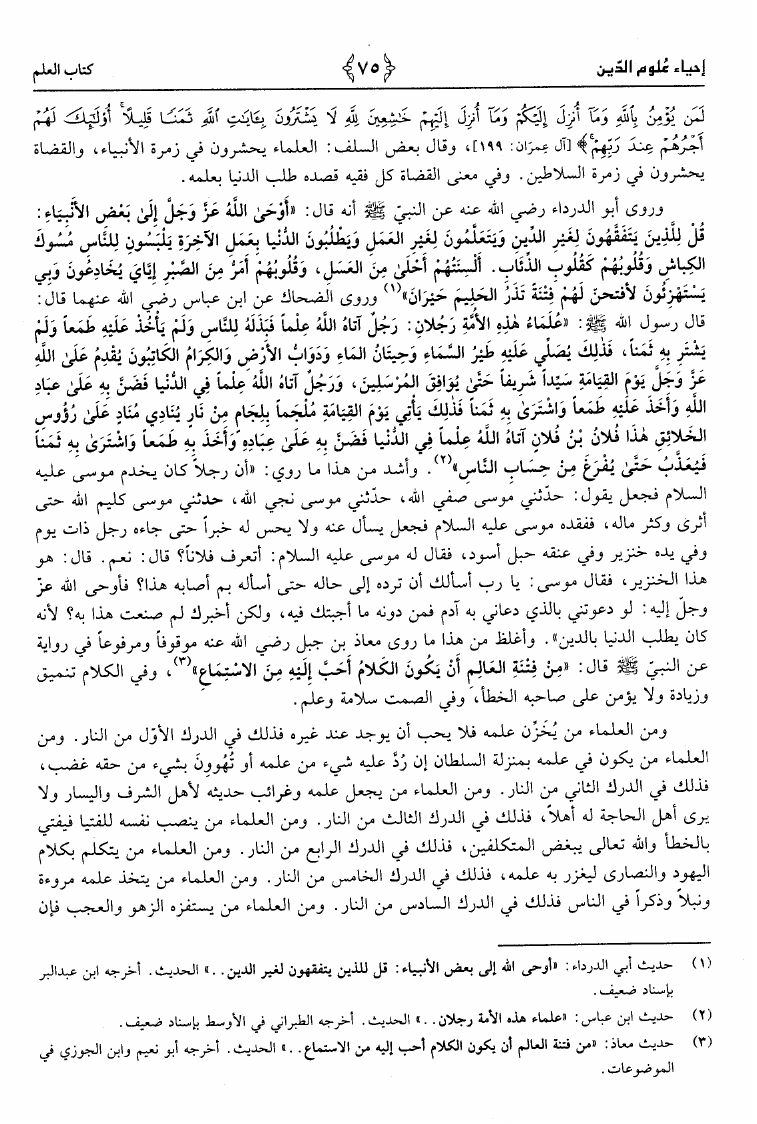 إحياء عُلوم الدّين ﴿٧٥﴾ كتاب العلم
لَمَن يُؤْمِنُ بِاللَّهِ وَمَآ أُنزِلَ إِلَيْكُمْ وَمَآ أُنزِلَ إِلَيْهِمْ خَٰشِعِينَ لِلَّهِ لَا يَشْتَرُونَ بِـَٔايَٰتِ اللَّهِ ثَمَنًا قَلِيلًا ۗ أُوْلَٰٓئِكَ لَهُمْ
أَجْرُهُمْ عِندَ رَبِّهِمْ ۗ﴾ [آل عِمرَان: ١٩٩]، وقال بعض السلف: العلماء يحشرون في زمرة الأنبياء، والقضاة
يحشرون في زمرة السلاطين. وفي معنى القضاة كل فقيه قصده طلب الدنيا بعلمه.
وروى أبو الدرداء رضي الله عنه عن النبيّ ﷺ أنه قال: «أَوْحَى اللَّهُ عَزَّ وَجَلَّ إِلَىٰ بَعْضِ الأَنْبِيَاءِ:
قُلْ لِلَّذِينَ يَتَفَقَّهُونَ لِغَيرِ الدِّينِ وَيَتَعَلَّمُونَ لِغَيرِ العَمَلِ وَيَطْلُبُونَ الدُّنْيَا بِعَمَلِ الآخِرَةِ يَلْبَسُونِ لِلنَّاسِ مُسُوكَ
الكِبَاشِ وَقُلُوبُهُمْ كَقُلُوبِ الذِّئَابِ. أَلْسِنَتُهُمْ أَحْلَىٰ مِنَ العَسَلِ، وَقُلُوبُهُمْ أَمَرُّ مِنَ الصَّبْرِ إِيَّايَ يُخَادِعُونَ وَبِي
يَسْتَهْزِئُونَ لأفتحنَ لَهُمْ فِتْنَةً تَذَرُ الحَلِيمَ حَيْرَانَ»(١) وروى الضحاك عن ابن عباس رضي الله عنهما قال:
قال رسول الله ﷺ: «عُلَمَاءُ هٰذِهِ الأُمَّةِ رَجُلانِ: رَجُلٌ آتَاهُ اللَّهُ عِلْماً فَبَذَلَهُ لِلنَّاسِ وَلَمْ يَأْخُذْ عَلَيْهِ طَمَعاً وَلَمْ
يَشْتَرِ بِهِ ثَمَناً، فَذَلِكَ يُصَلِّي عَلَيْهِ طَيْرُ السَّمَاءِ وَحِيتَانُ المَاءِ وَدَوَابُّ الأَرْضِ وَالكِرَامُ الكَاتِبُونَ يُقْدِمُ عَلَىٰ اللَّهِ
عَزَّ وَجَلَّ يَوْمَ القِيَامَةِ سَيِّداً شَرِيفاً حَتَّىٰ يُوَافِقَ المُرْسَلِينَ، وَرَجُلٌ آتَاهُ اللَّهُ عِلْماً فِي الدُّنْيَا فَضَنَّ بِهِ عَلَىٰ عِبَادِ
اللَّهِ وَأَخَذَ عَلَيْهِ طَمَعاً وَاشْتَرَىٰ بِهِ ثَمَناً فَذَلِكَ يَأْتِي يَوْمَ القِيَامَةِ مُلْجَماً بِلِجَامٍ مِنْ نَارٍ يُنَادِي مُنَادٍ عَلَىٰ رُؤُوسِ
الخَلائِقِ هٰذَا فُلانُ بْنُ فُلانٍ آتَاهُ اللَّهُ عِلْماً فِي الدُّنْيَا فَضَنَّ بِهِ عَلَىٰ عِبَادِهِ وَأَخَذَ بِهِ طَمَعاً وَاشْتَرَىٰ بِهِ ثَمَناً
فَيُعَذَّبُ حَتَّىٰ يُفْرَغَ مِنْ حِسَابِ النَّاسِ»(٢). وأشد من هذا ما روي: «أن رجلاً كان يخدم موسى عليه
السلام فجعل يقول: حدّثني موسى صفي الله، حدّثني موسى نجي الله، حدثني موسى كليم الله حتى
أثرى وكثر ماله، ففقده موسى عليه السلام فجعل يسأل عنه ولا يحس له خبراً حتى جاءه رجل ذات يوم
وفي يده خنزير وفي عنقه حبل أسود، فقال له موسى عليه السلام: أتعرف فلاناً؟ قال: نعم. قال: هو
هذا الخنزير، فقال موسى: يا رب أسألك أن ترده إلى حاله حتى أسأله بم أصابه هذا؟ فأوحى الله عزّ
وجلّ إليه: لو دعوتني بالذي دعاني به آدم فمن دونه ما أجبتك فيه، ولكن أخبرك لم صنعت هذا به؟ لأنه
كان يطلب الدنيا بالدين». وأغلظ من هذا ما روى معاذ بن جبل رضي الله عنه موقوفاً ومرفوعاً في رواية
عن النبيّ ﷺ قال: «مِنْ فِتْنَةِ العَالِمِ أَنْ يَكُونَ الكَلامُ أَحَبَّ إِلَيْهِ مِنَ الاسْتِمَاعِ»(٣)، وفي الكلام تنميق
وزيادة ولا يؤمن على صاحبه الخطأ، وفي الصمت سلامة وعلم.
ومن العلماء من يُخَزِّن علمه فلا يحب أن يوجد عند غيره فذلك في الدرك الأوّل من النار. ومن
العلماء من يكون في علمه بمنزلة السلطان إن رُدَّ عليه شيء من علمه أو تُهُووِنَ بشيء من حقه غضب،
فذلك في الدرك الثاني من النار. ومن العلماء من يجعل علمه وغرائب حديثه لأهل الشرف واليسار ولا
يرى أهل الحاجة له أهلاً، فذلك في الدرك الثالث من النار. ومن العلماء من ينصب نفسه للفتيا فيفتي
بالخطأ والله تعالى يبغض المتكلفين، فذلك في الدرك الرابع من النار. ومن العلماء من يتكلم بكلام
اليهود والنصارى ليغزر به علمه، فذلك في الدرك الخامس من النار. ومن العلماء من يتخذ علمه مروءة
ونبلاً وذكراً في الناس فذلك في الدرك السادس من النار. ومن العلماء من يستفزه الزهو والعجب فإن
(١) حديث أبي الدرداء: «أوحى الله إلى بعض الأنبياء: قل للذين يتفقهون لغير الدين..» الحديث. أخرجه ابن عبدالبر
بإسناد ضعيف.
(٢) حديث ابن عباس: «علماء هذه الأمة رجلان..» الحديث. أخرجه الطبراني في الأوسط بإسناد ضعيف.
(٣) حديث معاذ: «من فتنة العالم أن يكون الكلام أحب إليه من الاستماع..» الحديث. أخرجه أبو نعيم وابن الجوزي في
الموضوعات.